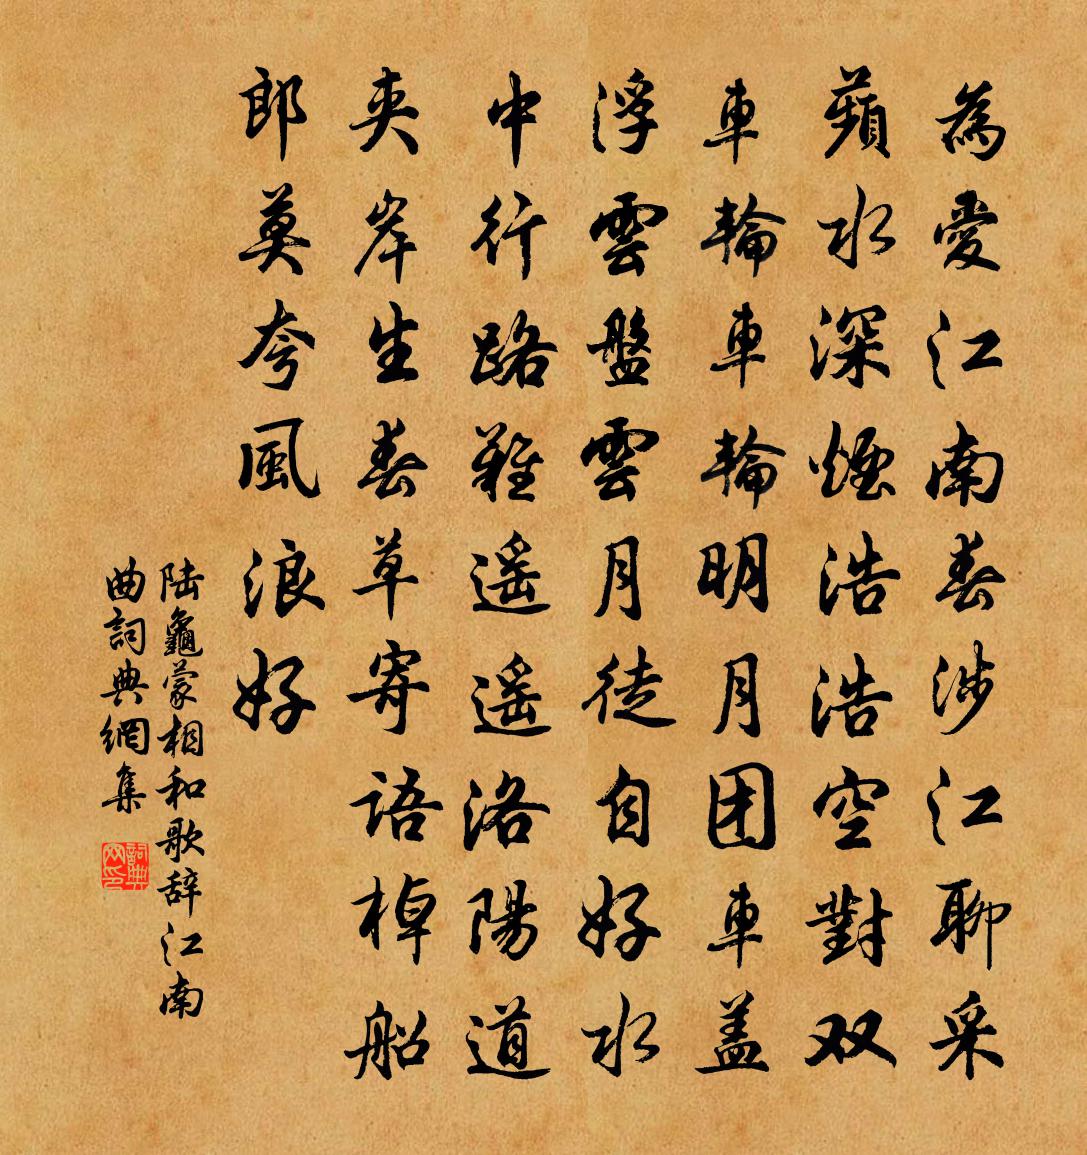 為愛江南春涉江聊采
蘋水深煙浩浩空對双
車輪車輪明月团車盖
浮雲盤雲月徒自好水
中行路難遥遥洛陽道
夾岸生春草寄語棹船
郎莫夸風浪好
陆龜蒙相和歌辞江南
曲詞典網集
詞典网印